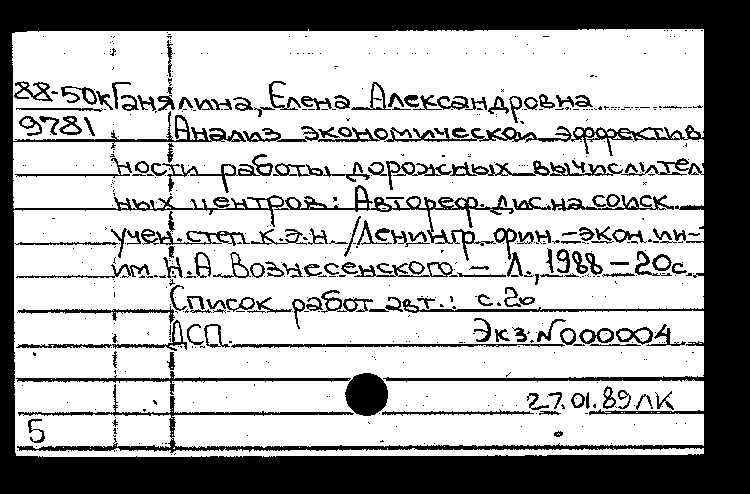 88-50к Ганялина, Елена Александровна
9781 Анализ экономической эффектив
ности работы дорожных вычислител
ных центров: Автореф. дис. на соиск
учен. степ к.э.н. /Ленингр. фин.-экон. ин-т
им Н.А. Вознесенского. – Л., 1988 – 20с.
Список работ авт.: с.20
ДСП. Экз. N000004
27.01.89 ЛК
5